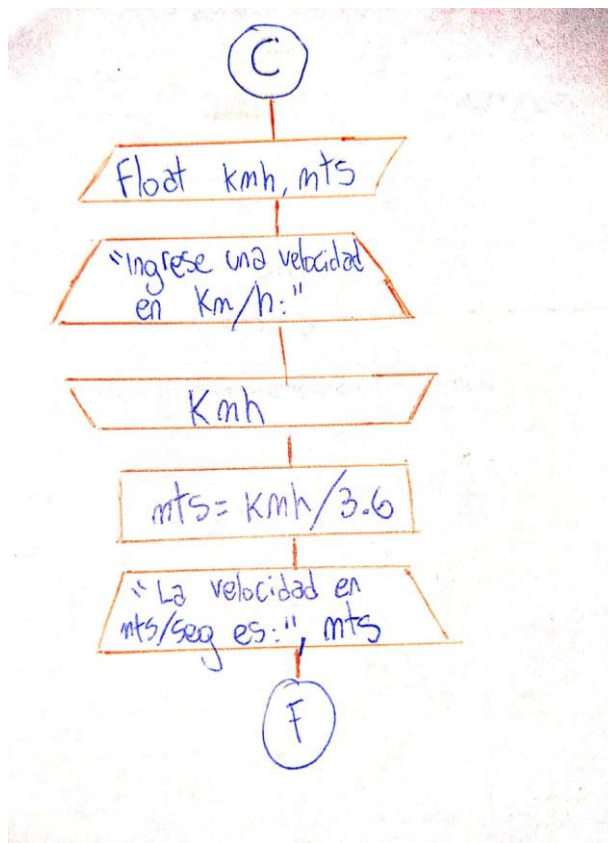 C
Float kmh, mts
"Ingrese una velocidad
en Km/h:"
Kmh
mts= kmh/3.6
"La velocidad en
mts/seg es:", mts
F